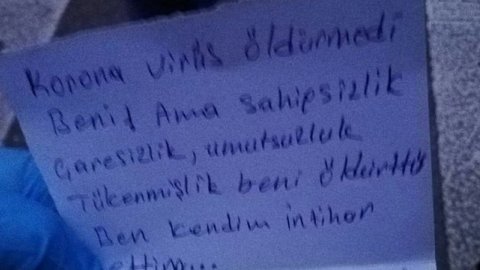 Korona virüs öldürmedi
Beni! Ama sahipsizlik
Çaresizlik, umutsuzluk
Tükenmişlik beni öldürttü
Ben kendim intihar
ettim...